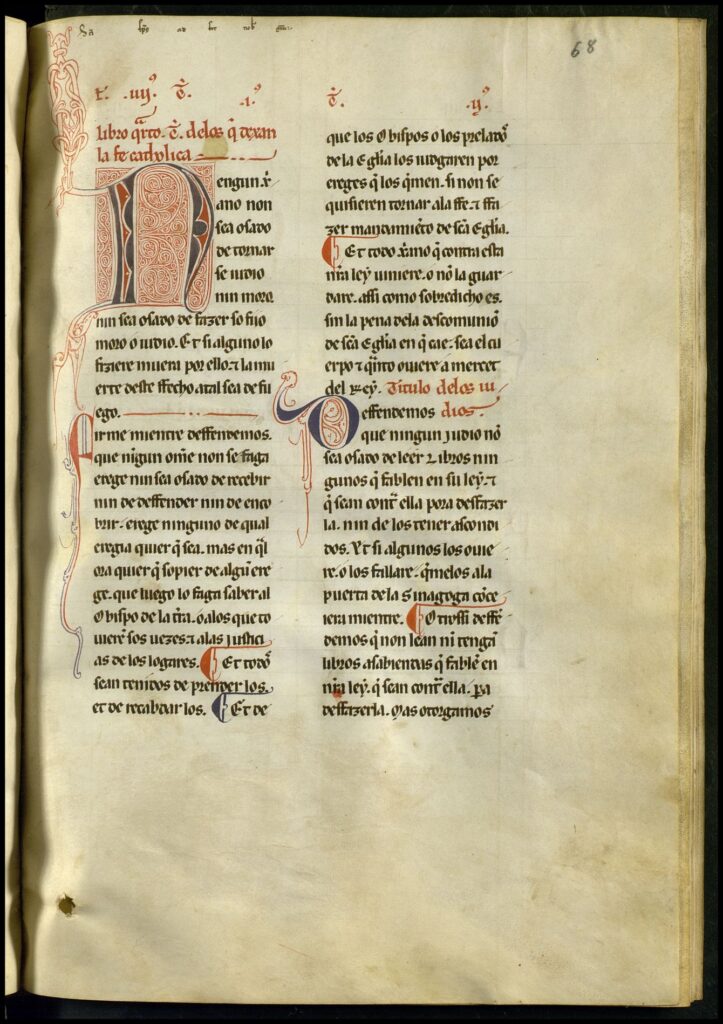 68
Libro qrto. t̃. delos q̃ dexan
la fe catholica
Nengun xr̃i
ano non
sea osado
de tornar
se iudio
nin moro.
nin sea osado de fazer so fijo
moro o iudio. Et si alguno lo
fiziere muera por ello. ⁊ la mu
erte deste ffecho atal sea de fu
ego.
Firme mientre deffendemos.
que ningun om̃e non se faga
erege nin sea osado de recebir
nin de deffender nin de enco
brir. erege ninguno de qual
eregia quier q̃ sea. mas en q̃l
ora quier q̃ sopier de algũ ere
ge. que luego lo faga saber al
Obispo de la tr̃ra. o alos que to
uierẽ sos uezes. ⁊ a las justici
as de los logares. Et todos
sean tenidos de prender los.
et de recabdar los. Et de
t̃.
.ij.º
que los Obispos o los prelados
de la Egl̃ia los iudgaren por
ereges q̃ los q̃men. si non se
quisieren tornar a la ffe. ⁊ ffa
zer mandamiẽto de sc̃a Egl̃ia.
Et todo xr̃ano q̃ contra esta
nr̃a ley uiniere. o nõ la guar
dare. assi como sobredicho es.
sin la pena dela descomuniõ
de sc̃a Egl̃ia en q̃ cae. sea el cu
erpo ⁊ q̃nto ouiere a mercet
del Rey. Titulo delos iu
Deffendemos dios.
que ningun judio nõ
sea osado de leer Libros nin
gunos q̃ fablen en su ley. ⁊
q̃ sean contr̃ ella pora desfazer
la. nin de los tener ascondi
dos. Et si algunos los ouie
re. o los fallare. q̃melos a la
puerta de la Sinagoga cõce
iera mientre. Otrossi deffẽ
demos q̃ non lean nĩ tengã
libros a sabiendas q̃ fablẽ en
nr̃a ley. q̃ sean contr̃ ella. pa
desfazerla. Mas otorgamos